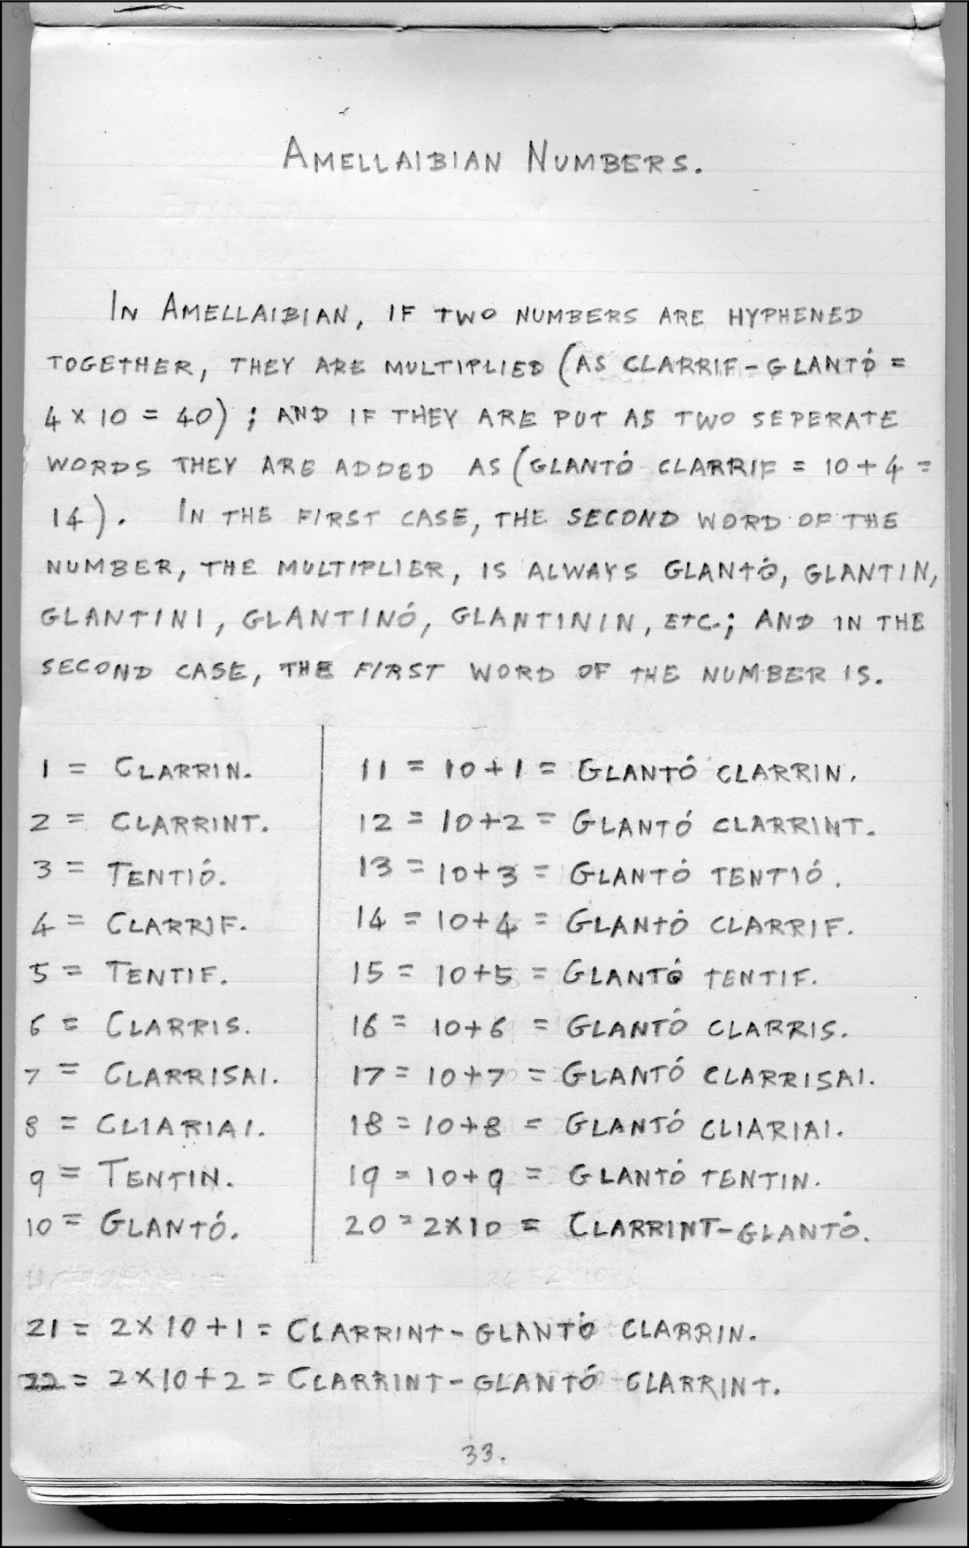 AMELLAIBIAN NUMBERS.
IN AMELLAIBIAN, IF TWO NUMBERS ARE HYPHENED
TOGETHER, THEY ARE MULTIPLIED (AS CLARRIF-GLANTÓ =
4 × 10 = 40) ; AND IF THEY ARE PUT AS TWO SEPERATE
WORDS THEY ARE ADDED AS (GLANTÓ CLARRIF = 10 + 4 =
14). IN THE FIRST CASE, THE SECOND WORD OF THE
NUMBER, THE MULTIPLIER, IS ALWAYS GLANTÓ, GLANTIN,
GLANTINI, GLANTINÓ, GLANTININ, ETC.; AND IN THE
SECOND CASE, THE FIRST WORD OF THE NUMBER IS.
1 = CLARRIN.
2 = CLARRINT.
3 = TENTIÓ.
4 = CLARRIF.
5 = TENTIF.
6 = CLARRIS.
7 = CLARRISAI.
8 = CLIARIAI.
9 = TENTIN.
10 = GLANTÓ.
11 = 10+1 = GLANTÓ CLARRIN.
12 = 10+2 = GLANTÓ CLARRINT.
13 = 10+3 = GLANTÓ TENTIÓ.
14 = 10+4 = GLANTÓ CLARRIF.
15 = 10+5 = GLANTÓ TENTIF.
16 = 10+6 = GLANTÓ CLARRIS.
17 = 10+7 = GLANTÓ CLARRISAI.
18 = 10+8 = GLANTÓ CLIARIAI.
19 = 10+9 = GLANTÓ TENTIN.
20 = 2×10 = CLARRINT-GLANTÓ.
21 = 2×10+1 = CLARRINT-GLANTÓ CLARRIN.
22 = 2×10+2 = CLARRINT-GLANTÓ CLARRINT.
33.